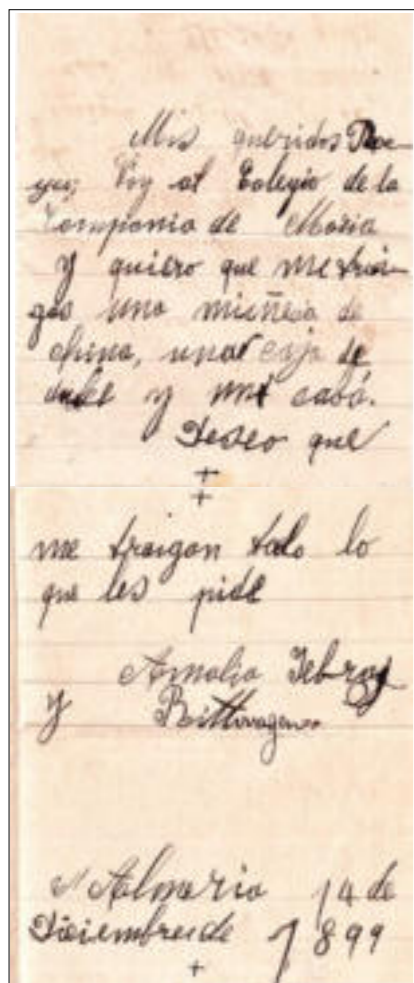 Mis queridos Re-
yes; Voy al Colegio de la
Compania de Maria
y quiero que me trai-
gas una muñeca de
china, una caja de
dulce y una casa.
Deseo que
+
+
me traigan todo lo
que les pide
Amalia
y
Almeria 14 de
Diciembre de 1899
+